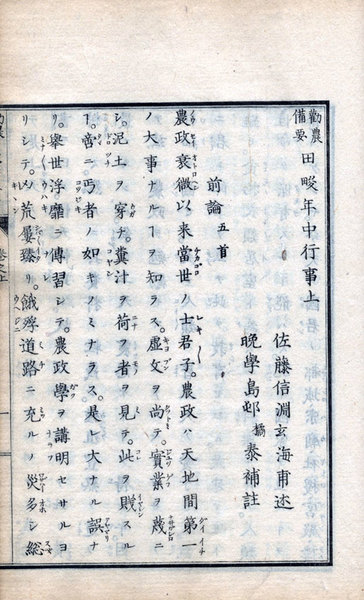 勸農備要 田畯年中行事上
佐藤信淵玄海甫述
晩學島邨 泰補註
前論 五首
農政衰微以來當世ノ士君子。農政ハ天地間第一
ノ大事ナルヿヲ知ラス。虚文ヲ尚テ。實業ヲ蔑ニ
シ。泥土ヲ穿チ。糞汁ヲ荷フ者ヲ見テ。此ヲ賎スル
ヿ。啻ニ丐者ノ如キノミナラス。是レ大ナル誤ナ
リ。擧世浮靡ニ傳習シテ。農政學ヲ講明セサルヨ
リシテ。凶荒屢臻リ。餓殍道路ニ充ルノ災多シ總